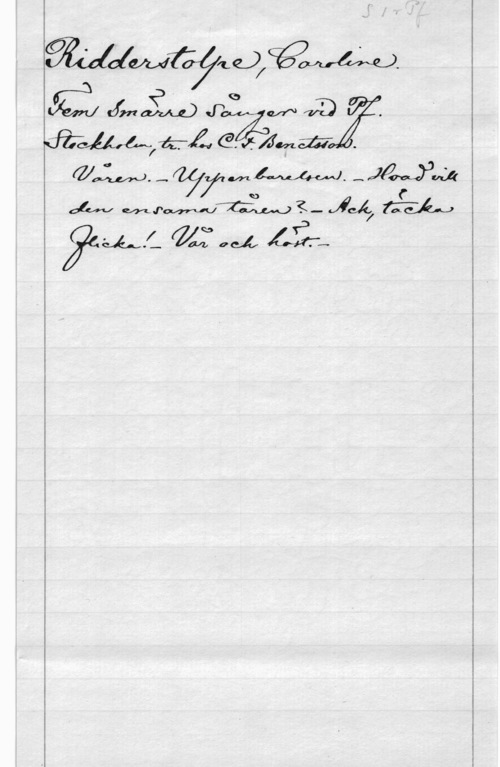 S 1 r Pf
Ridderstolpe, Caroline.
Fem smärre Sånger vid Pf.
Stockholm, tr. hos C. F. Benctsson.
Våren. – Uppenbarelsen. – Hvad vill
den ensama tåren? – Ack, täcka
flicka! – Vår och höst. –